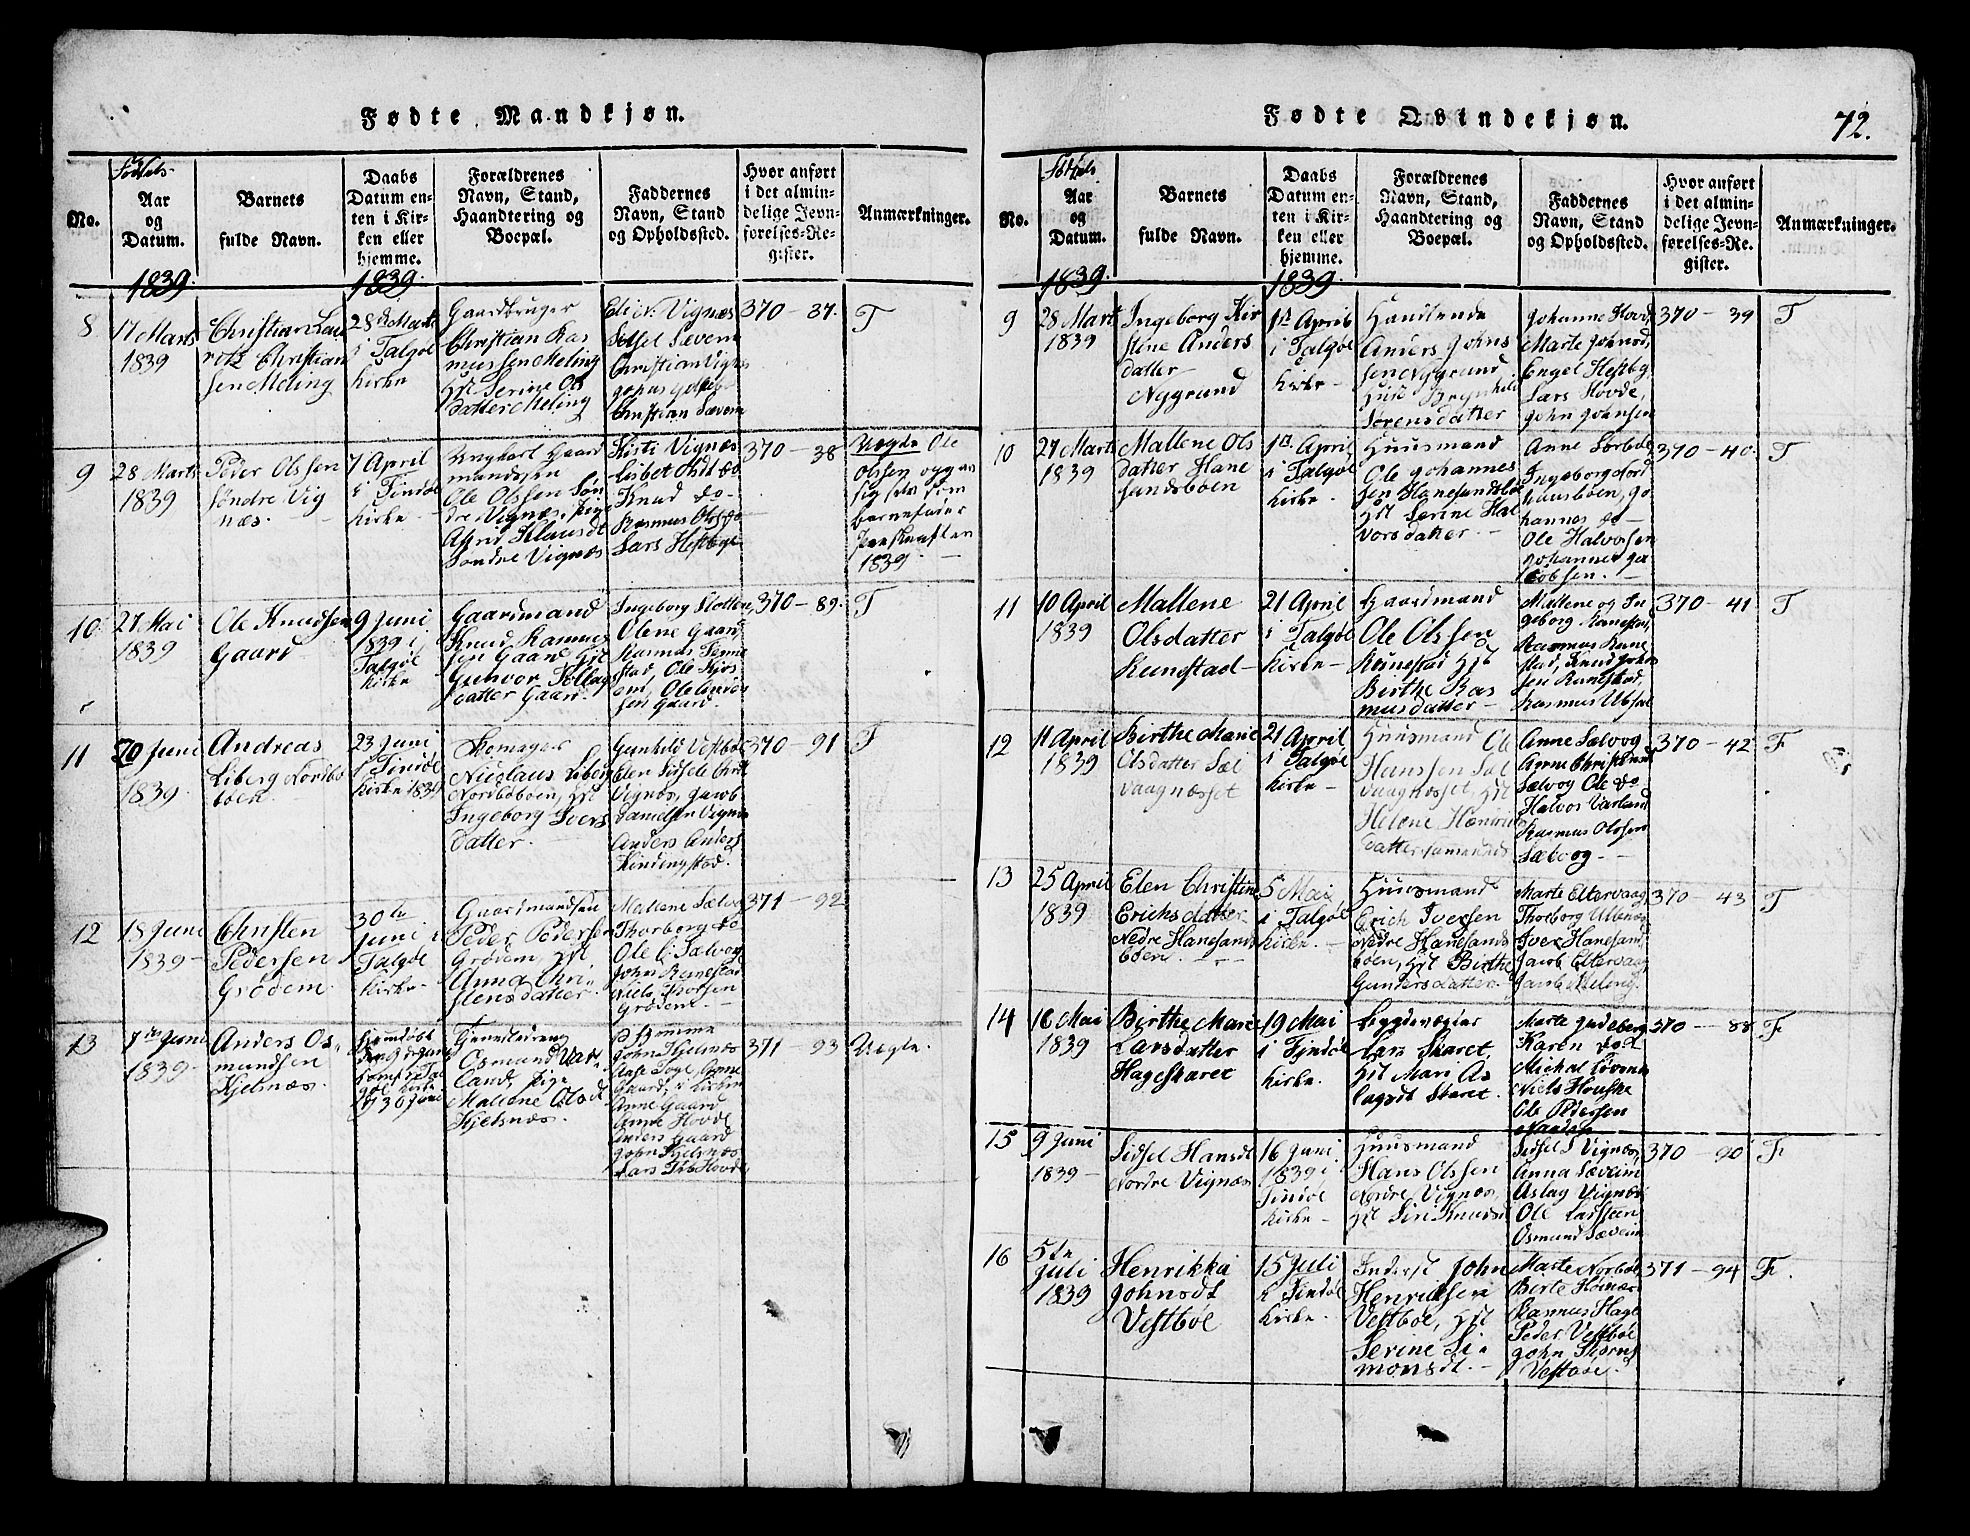 Fødte Mandkjøn.
No.
Fødsels-
Aar
og
Datum.
Barnets
fulde Navn.
Daabs
Datum en-
ten i Kir-
ken eller
hjemme.
Forældrenes
Navn, Stand,
Haandtering og
Boepæl.
Faddernes
Navn, Stand
og Opholdssted.
Hvor anført
i det almin-
delige Jevn-
førelses-Re-
gister.
Anmærkninger.
1839
1839
8
17 Marts
1839
Christian Lau
ritz Christian
sen Meling
28 Marts
i Talgøe
Kirke
Gaardbruger
Christian Ras
mussen Meling
Hst Serine Ols
datter Meling
Vignæs
Sidsel Sævem
Christian Vignæs
Christian Sævem
370 - 37.
F
9
28 Marts
1839
Peder Olssen
Søndre Vig
næs.
7 April
i Findøe
Kirke -
Ungkarl Gaard
mandssøn
Ole Olssen Søn
dre Vignæs, Pige
Knudsdt
Søndre Vignæs
Kisti Vignæs
Lisbet do
Knud do-
Rasmus Olss do
Lars Hestbøe
370 - 38
Uægte Ole
Olssen opgav
sig selv som
barnefader
1839.
10
27 Mai
1839
Ole Knudsen
Gaard
9 Juni
1839 i
Talgøe
Kirke
Gaardmand
Knud Rasmus
sen Gaard Hst
Gunvor Tollag
datter Gaard.
Ingeborg
Olene Gaard,
Rasmus
stad, Ole
Ole
sen Gaard.
370 - 89.
F
11
20 Juni
1839.
Andreas
Liberg Nordbø
bøen.
23 Juni
i Findøe
Kirke 1839
Skomager
Nicolaus Liberg
Nordbøbøen, Hst
Ingeborg Ivers
datter.
Gunhild Vestbøe
Elen Sidsele
Vignæs, Jacob
Danielsen Vignæs
Anders Anders
Kindingstad.
370 - 91
F
12
18 Juni
1839 -
Christen
Pedersen
Grødem.
30te
Juni i
Talgøe
Kirke -
Gaardmandsøn
Peder Pedersen
Grødem Hst
Anna Chri-
stensdatter.
Mallene Sælvog
Thorborg do
Ole L. Sælvog
John Rennestad
Niels Thorsen
Grødem.
371 - 92
13
7de Juni
1839 -
Anders Os-
mundsen
Hjelnæs.
Hjemdøbt
den 9de Juni
Talgøe Kirke
30 Juni
Tjenestedreng
Osmund Var-
land, Pige
Mallene Olsdt
Hjelsnæs.
John Hjelsnæs
Gaard, i Kirken
Anne Gaard
Anne Hovde
Anders Gaard
John Hjelsnæs
Lars Hovde
371 - 93
Uægte.
Fødte Qvindekjøn.
72.
No.
Fødsels
Aar
og
Datum.
Barnets
fulde Navn.
Daabs
Datum en-
ten i Kir-
ken eller
hjemme.
Forældrenes
Navn, Stand,
Haandtering og
Boepæl.
Faddernes
Navn, Stand
og Opholdssted.
Hvor anført
i det almin-
delige Jevn-
førelses-Re-
gister.
Anmærkninger.
1839.
1839
9
28 Mart
1839
Ingeborg Kir
stine Anders
datter
Nygrund
1te April
i Talgøe
Kirke -
Handlende
Anders Johns
sen Nygrund
Hust. Brynhild
Sørensdatter
Johanne Hovde
Marte Johnsd,
Engel Hestbø,
Lars Hovde,
John Johnsen
370 - 39
F
10
27 Marts
1839
Mallene Ols
datter Hane
sandsbøen
1te April
i Talgøe
Kirke -
Huusmand
Ole Johannes
sen Hanesandsbøe
Hst Serine Hal
vorsdatter. -
Anne Sørbøe
Ingeborg Nord
huusbøen, Jo
hannes do -
Ole Halvorsen
Johannes Ja
cobsen. -
370 - 40.
F
11
10 April
1839
Mallene
Olsdatter
Runestad -
21 April
i Talgøe
Kirke -
Gaardmand
Ole Olssen
Runestad Hst
Birthe Ras
musdatter -
Mallene og In
geborg Runestad,
Rasmus Rune
stad, Knud John
sen Runestad,
Rasmus Ubsal
370 - 41
F
12
11 April
1839
Birthe Marie
Olsdatter Sæl
vaagnæsset
21 April
i Talgøe
Kirke -
Huusmand Ole
Hanssen Sæl
vaagnæsset, Hst
Helene Henrichs
datter sammesteds
Anne Sælvog
Anne Christiane
Sælvog Ole do
Halvor Varland
Rasmus Olssen
Sælvog -
370 - 42
F
13
25 April
1839
Elen Christine
Erichsdatter
Nedre Hanesands
bøen.
5 Mai
i Talgøe
Kirke. -
Huusmand
Erich Iversen
Nedre Hanesands
bøen, Hst Birthe
Gundersdatter.
Marte Eltervaag
Thorborg Ulsnæs
Iver Hanesand
Jacob Eltervaag
Jacob Meling.
370 - 43
F
14
16 Mai
1839
Birthe Marie
Larsdatter
Hageskaret
19 Mai
i Findøe
Kirke.
Bygdevægter
Lars Skaret,
Hst Mari As
lagsdt Skaret.
Marte Judeberg
Karen do
Michal
Niels Houske
Ole Pedersen
370 - 88
F
15
9 Juni
1839 -
Sidsel Hansdt
Nordre Vignæs
16 Juni
1839 i
Findøe
Kirke -
Huusmand
Hans Olssen
Nordre Vignæs,
Hst Siri Knudsd
Sidsel S Vignæs,
Anna Sævem
Aslag Vignæs
Ole Carsteen
Osmund Sævem
370 - 90
F
16
5te
Juli
1839
Henrikka
Johnsdt
Vestbøe
15 Juli
i Findøe
Kirke -
Inderst John
Henriksen
Vestbøe, Hst
Serine Si-
monsdt. -
Marte Norbøe
Birte Hønæs
Rasmus Hage
Peder Vestbøe
John
Vestbøe.
371 - 94
F.